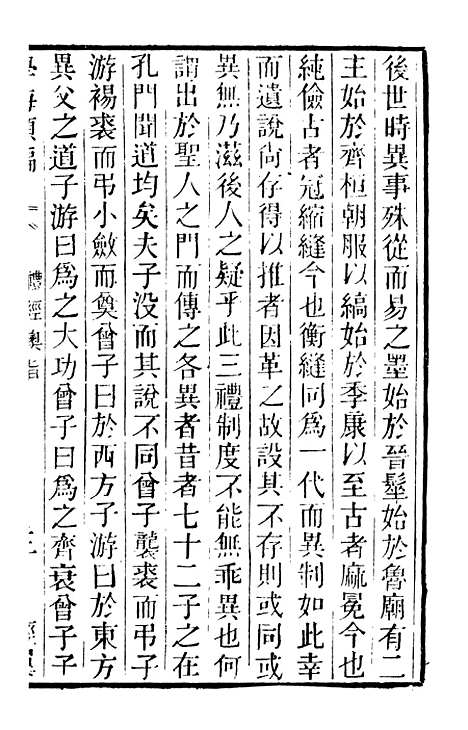 後世時異事殊從而易之墨始於晉髽始於魯廟有二
主始於齊桓朝服以縞始於季康以至古者麻冕今也
純儉古者冠縮縫今也衡縫同爲一代而異制如此幸
而遺說尚存得以推者因革之故設其不存則或同或
異無乃滋後人之疑乎此三禮制度不能無乖異也何
謂出於聖人之門而傳之各異者昔者七十二子之在
孔門聞道均矣夫子没而其說不同曾子襲裘而弔子
游裼裘而弔小斂而奠曾子曰於西方子游曰於東方
異父之道子游曰爲之大功曾子曰爲之齊衰曾子子
學海類編
禮經奧旨